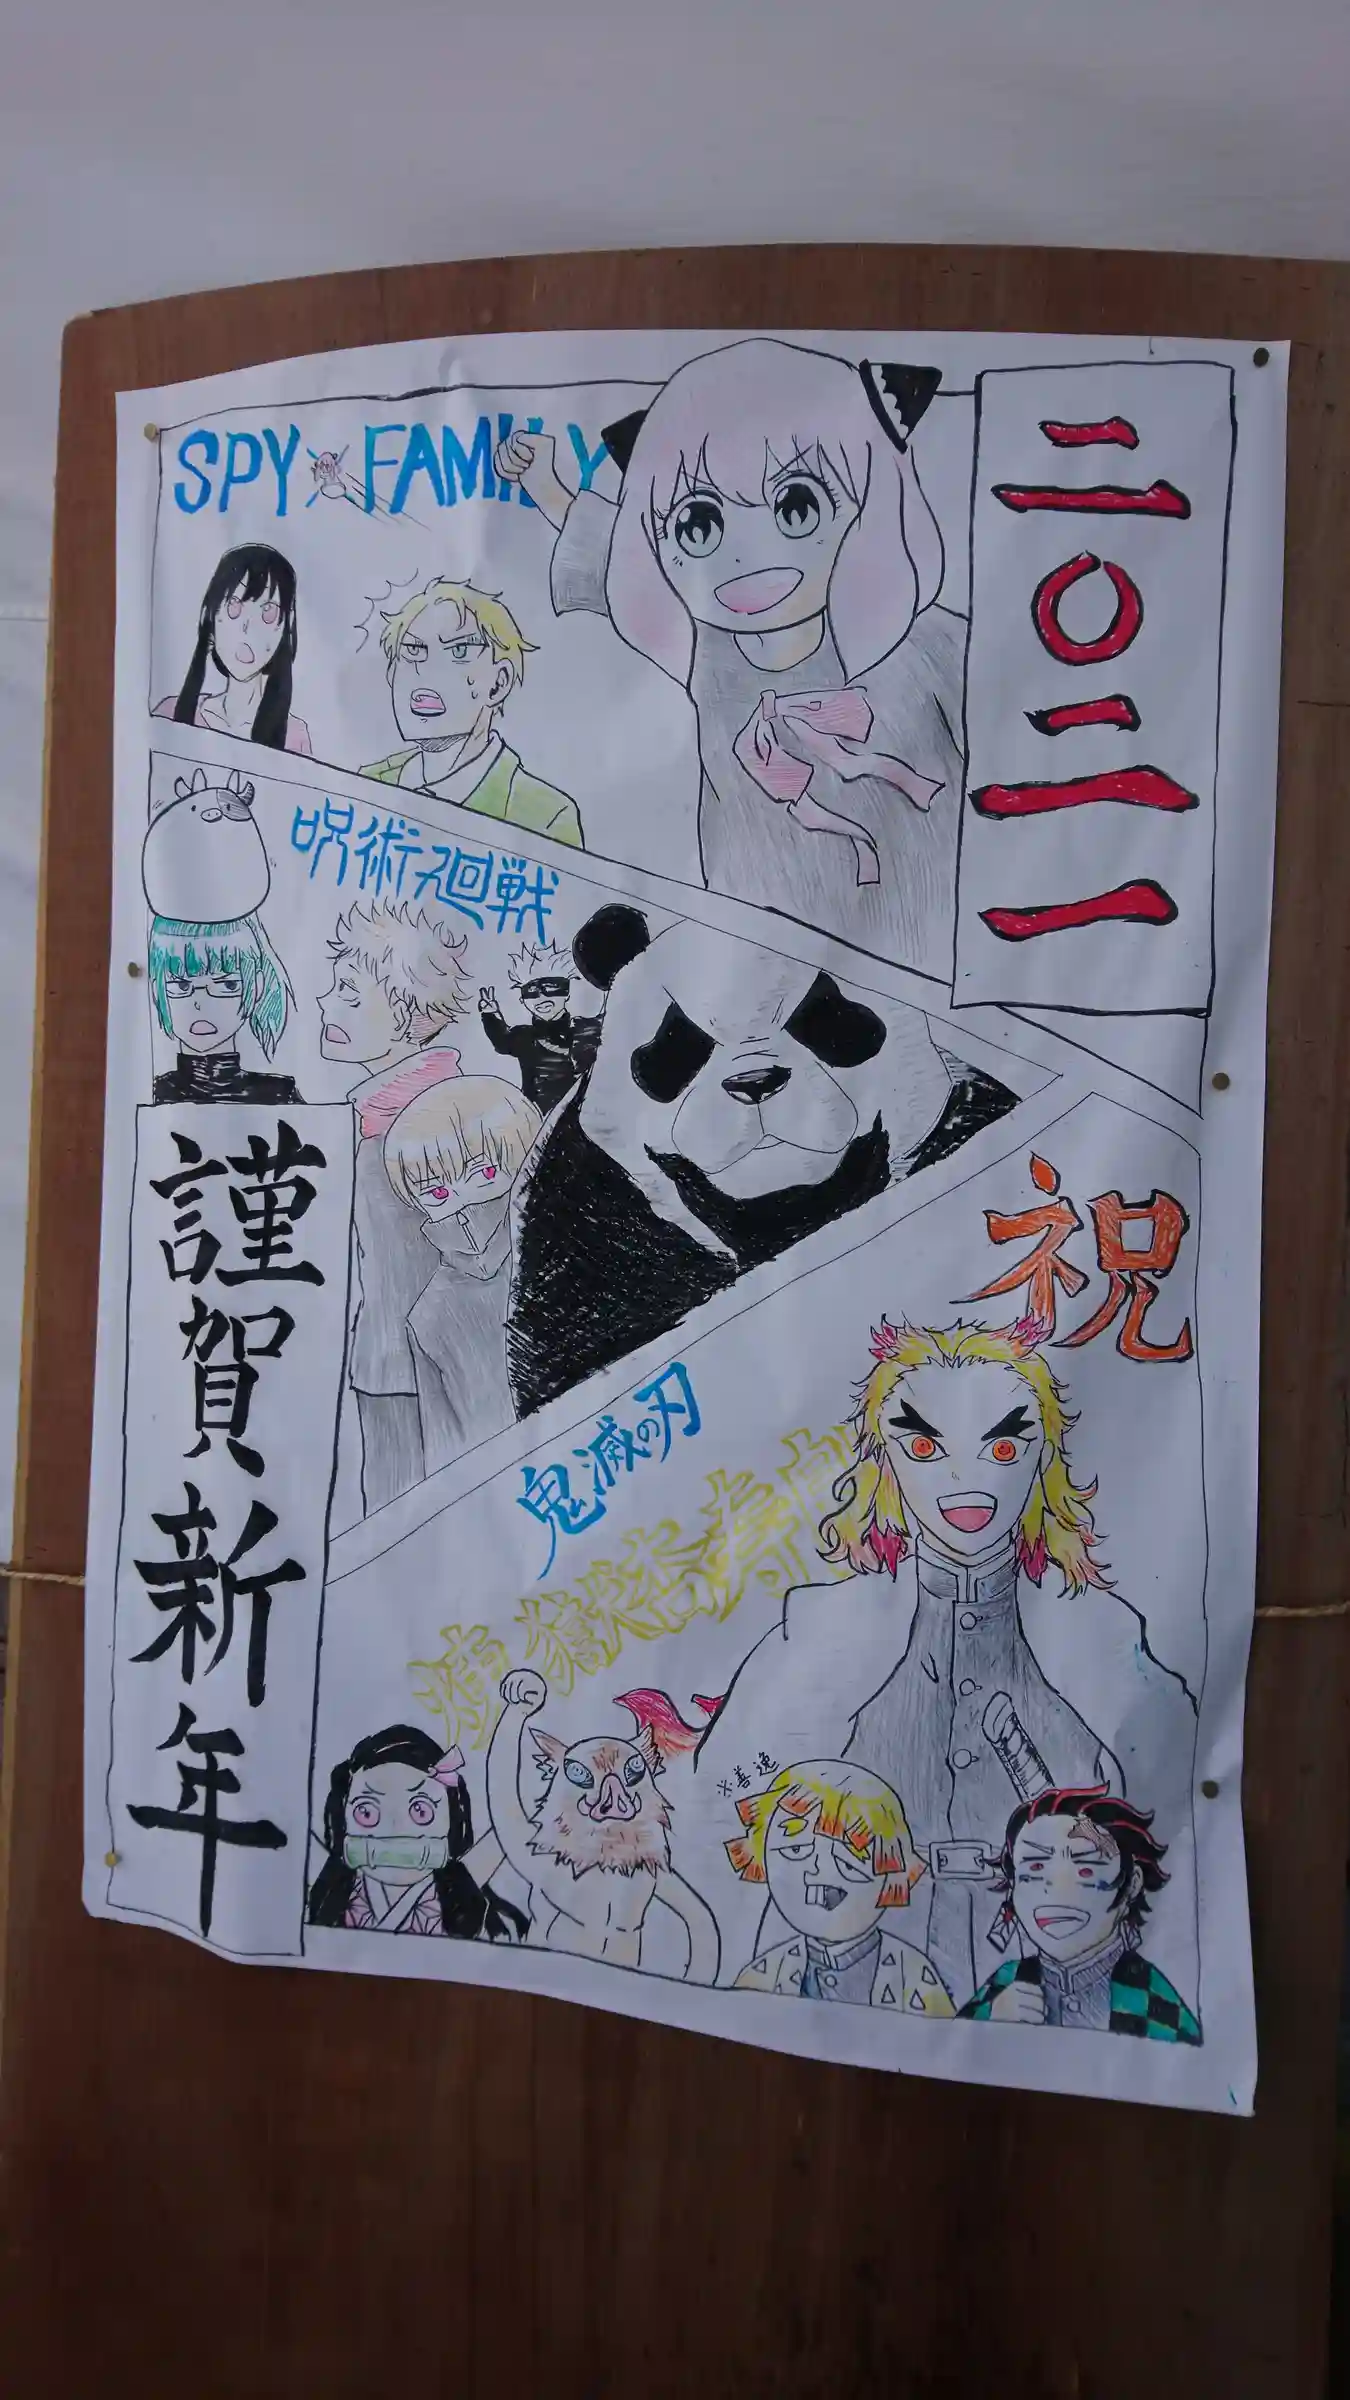 SPY×FAMILY
二〇二一
呪術廻戦
謹賀新年
祝
鬼滅の刃
煉獄杏寿郎
※善逸